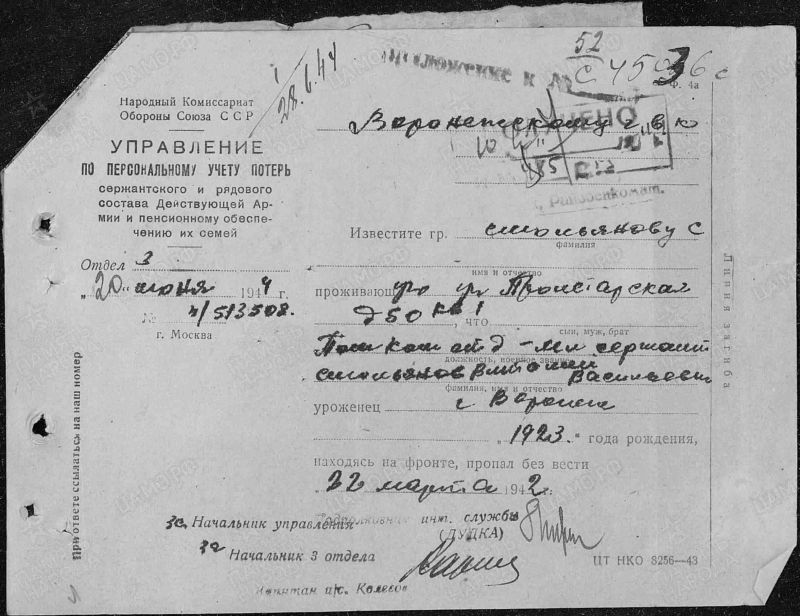 28.6.44
Приложение к №
52
с 45036 с
Ф. 4а
Народный Комиссариат
Обороны Союза ССР
УПРАВЛЕНИЕ
ПО ПЕРСОНАЛЬНОМУ УЧЕТУ ПОТЕРЬ
сержантского и рядового
состава Действующей Ар-
мии и пенсионному обеспе-
чению их семей
Отдел 3
„20" июня 1944 г.
№ 4/513508.
г. Москва
При ответе ссылаться на наш номер
Воронежскому г. в к
Известите гр. Смольянову С
фамилия
имя и отчество
проживающую ул Пролетарская
д 50 кв 1, что
сын, муж, брат
Пом ком отд - мл сержант
должность, военное звание
Смольянов Виталий Васильевич
фамилия, имя и отчество
уроженец г. Воронеж
„1923." года рождения,
находясь на фронте, пропал без вести
22 марта 1942 г.
Линия загиба
За Начальник управления Подполковник инт. службы
(ДУДКА)
За Начальник 3 отдела
Капитан а/с. Колесов
ЦТ НКО 8256—43